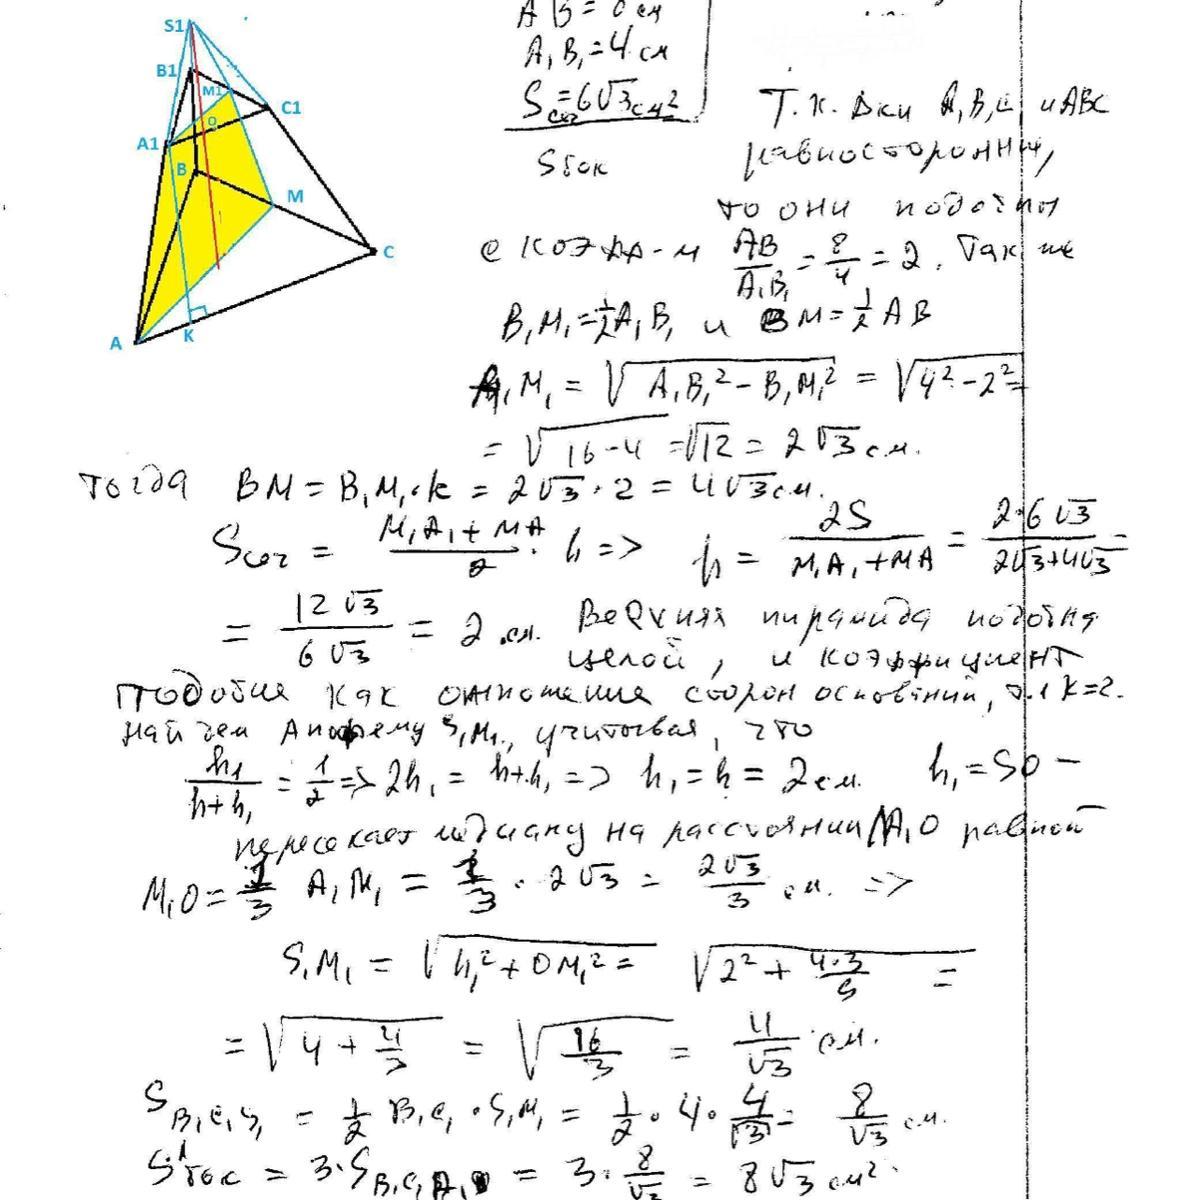 S1
B1
M1
C1
O
A1
B
M
C
K
A
A₁B₁=4 см
Sсеч=6√3см²
Sбок
Т.к. Δки A₁B₁C₁ и ABC
равносторонни,
то они подобны
с коэфф-м AB/A₁B₁ = 8/4 = 2. Так же
B₁M₁=½A₁B₁ и BM=½AB
A₁M₁ = √(A₁B₁²-B₁M₁²) = √(4²-2²) =
= √(16-4) = √12 = 2√3 см.
тогда BM = B₁M₁·k = 2√3·2 = 4√3 см.
Sсеч = (M₁A₁+MA)/2 · h => h = 2S/(M₁A₁+MA) = 2·6√3/(2√3+4√3) =
= 12√3/6√3 = 2 см. Верхняя пирамида подобна
целой, и коэффициент
подобия как отношение сторон оснований, т.к k=2.
найдем апофему S₁M₁, учитывая, что
h₁/(h+h₁) = 1/2 => 2h₁ = h+h₁ => h₁=h = 2 см. h₁=SO –
пересекает медиану на расстоянии M₁O равной
M₁O = 1/3 A₁M₁ = 1/3 · 2√3 = 2√3/3 см. =>
S₁M₁ = √(h₁²+OM₁²) = √(2²+4·3/9) =
= √(4+4/3) = √(16/3) = 4/√3 см.
S B₁C₁S₁ = ½ B₁C₁·S₁M₁ = ½·4·4/√3 = 8/√3 см.
S¹бок = 3·S = 3·8/√3 = 8√3 см².